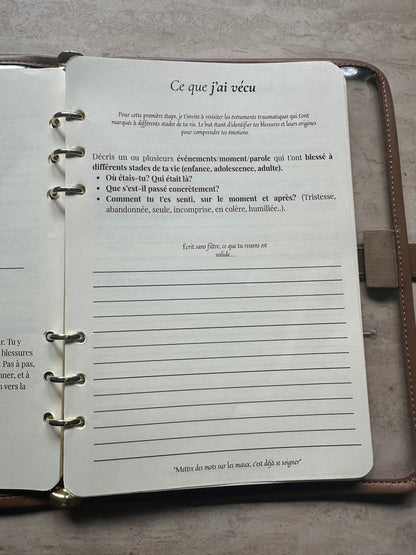 r. Tu y
blessures
. Pas à pas,
nner, et à
n vers la
Ce que j'ai vécu
Pour cette première étape, je t'invite à revisiter les événements traumatiques qui t'ont
marqués à différents stades de ta vie. Le but étant d'identifier tes blessures et leurs origines
pour comprendre tes émotions.
Décris un ou plusieurs événements/moment/parole qui t'ont blessé à
différents stades de la vie (enfance, adolescence, adulte).
• Où étais-tu? Qui était là?
• Que s'est-il passé concrètement?
• Comment tu t'es senti, sur le moment et après? (Tristesse,
abandonnée, seule, incomprise, en colère, humiliée..).
Écrit sans filtre, ce que tu ressens est
valide....
"Mettre des mots sur les maux, c'est déjà se soigner"